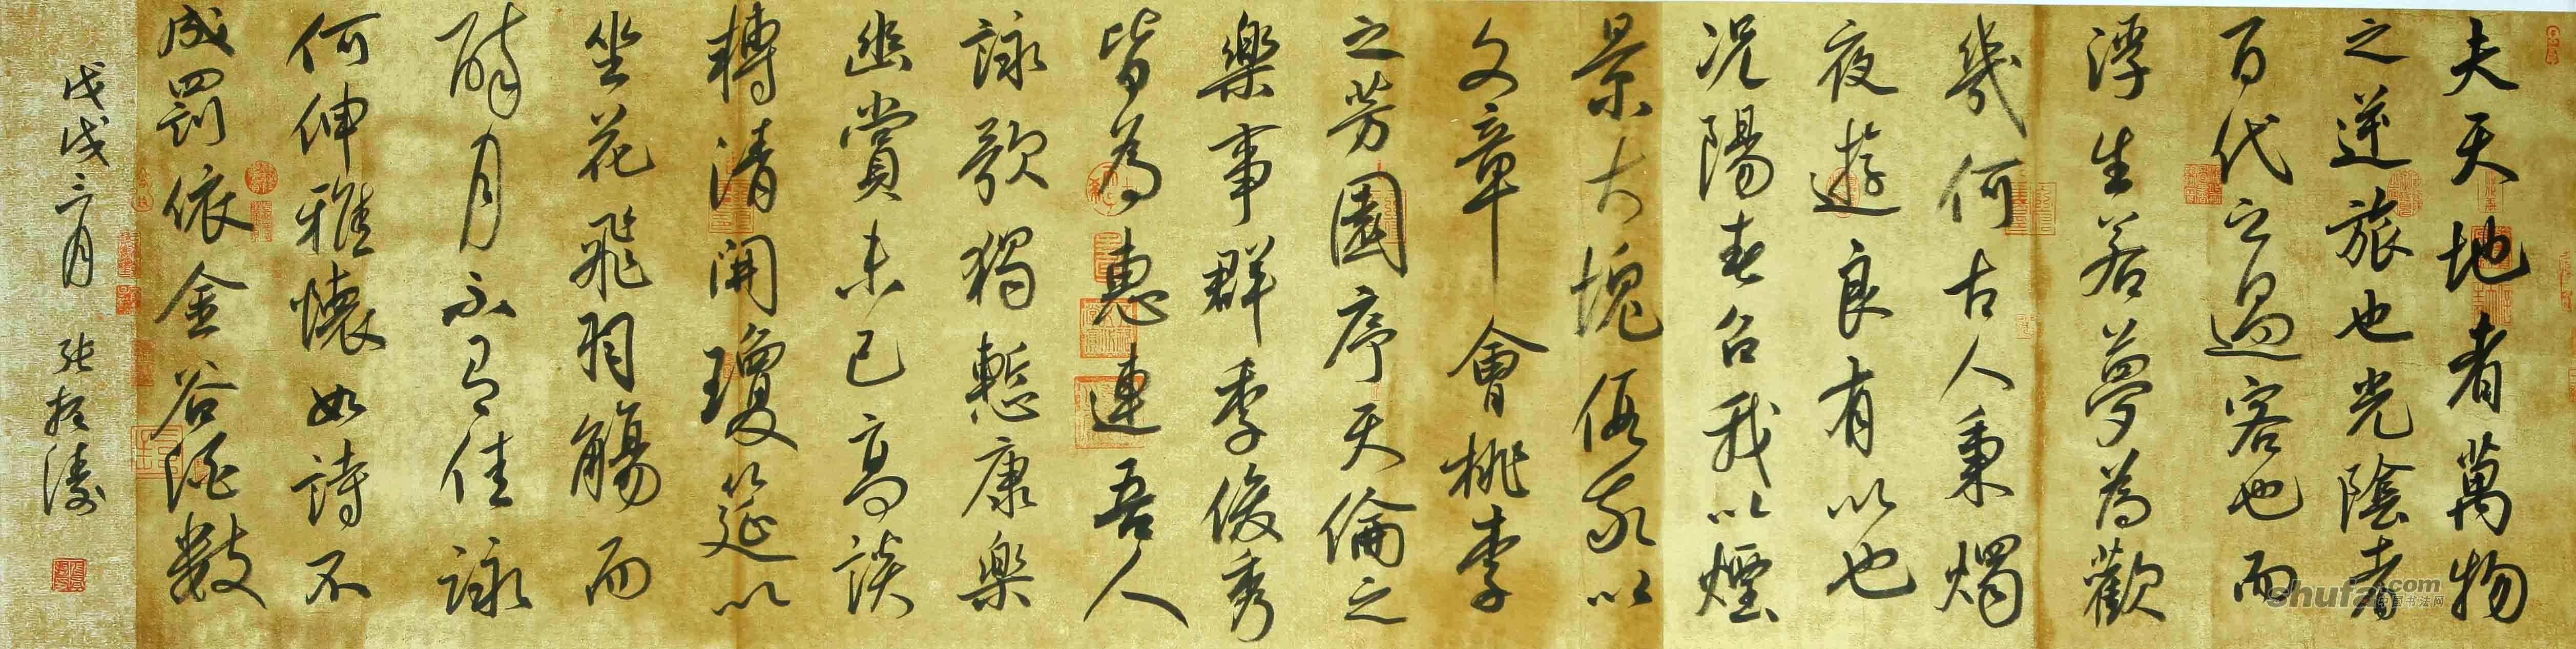 夫天地者萬物
之逆旅也光陰者
百代之過客也而
浮生若夢為歡
幾何古人秉燭
夜遊良有以也
况陽春召我以煙
景大塊假我以
文章會桃李
之芳園序天倫之
樂事群季俊秀
皆為惠連吾人
詠歌獨慙康樂
幽賞未已高談
轉清開瓊筵以
坐花飛羽觴而
醉月不有佳詠
何伸雅懷如詩不
成罰依金谷酒數
戊戌三月 張振濤
shufa.com
中国书法网